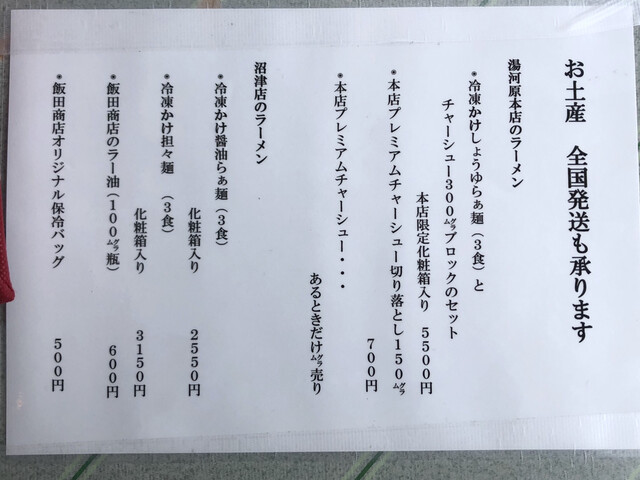 お土産　全国発送も承ります
湯河原本店のラーメン
＊冷凍かけしょうゆらぁ麺（３食）と
チャーシュー３００㌘ブロックのセット
本店限定化粧箱入り　５５００円
＊本店プレミアムチャーシュー切り落とし１５０㌘
７００円
＊本店プレミアムチャーシュー・・・
あるときだけ㌘売り
沼津店のラーメン
＊冷凍かけ醤油らぁ麺（３食）
化粧箱入り　２５５０円
＊冷凍かけ担々麺　（３食）
化粧箱入り　３１５０円
＊飯田商店のラー油（１００㌘瓶）　６００円
＊飯田商店オリジナル保冷バッグ　５００円